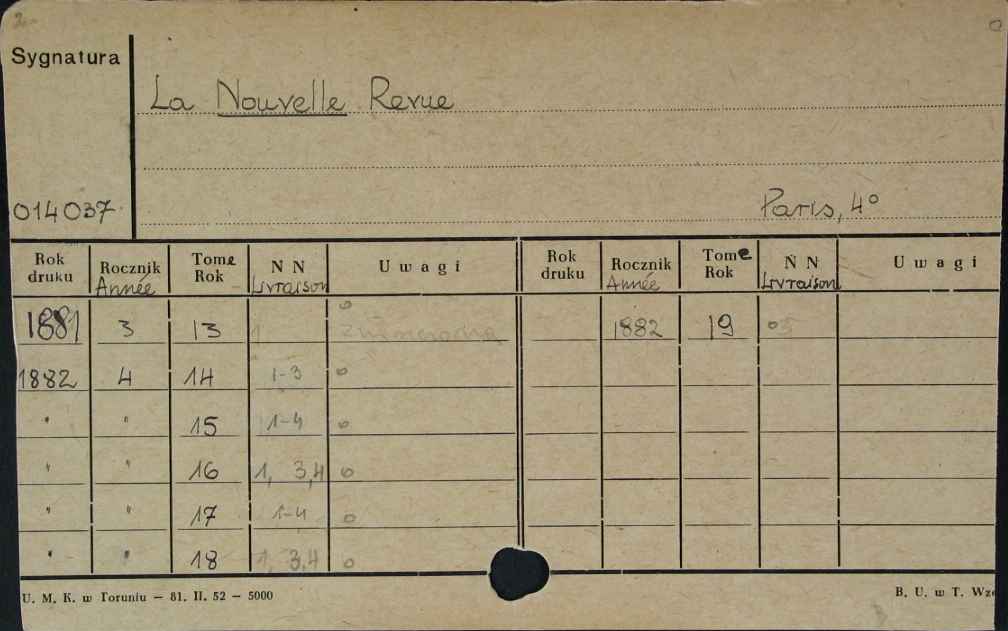 Sygnatura
La Nouvelle Revue
014037
Paris, 4°
Rok druku Rocznik Année Tome Rok N N Livraison Uwagi Rok druku Rocznik Année Tome Rok N N Livraison Uwagi
1881 3 13 1 o 1882 19 o
1882 4 14 1-3 o
" " 15 1-4 o
" " 16 1, 3,4 o
" " 17 1-4 o
" " 18 1, 3,4 o
U. M. K. w Toruniu — 81. II. 52 — 5000
B. U. w T.